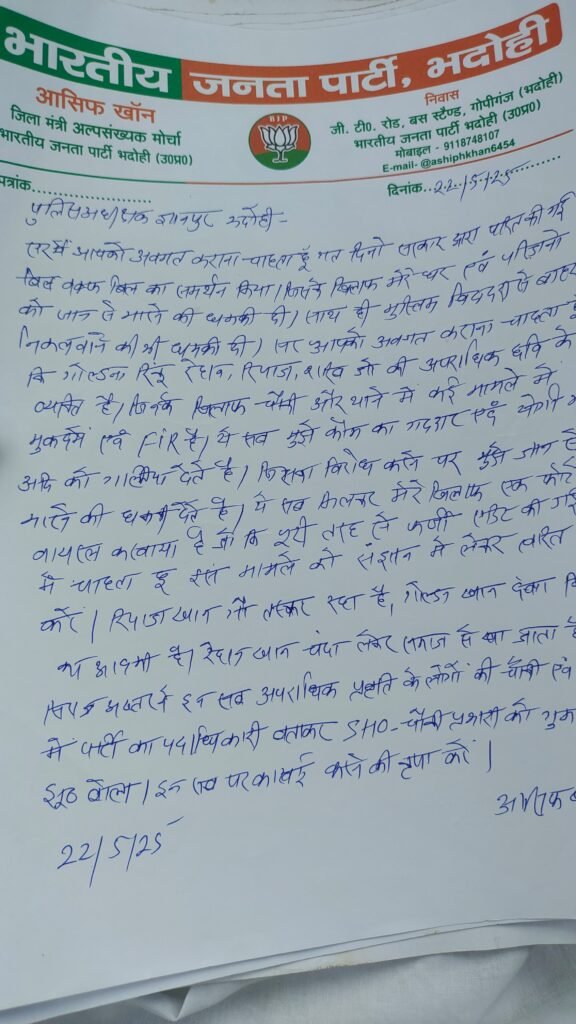 भारतीय जनता पार्टी, भदोही
आसिफ खॉन
जिला मंत्री अल्पसंख्यक मोर्चा
भारतीय जनता पार्टी भदोही (उ0प्र0)
BJP
निवास
जी. टी0. रोड, बस स्टैण्ड, गोपीगंज (भदोही)
भारतीय जनता पार्टी भदोही (उ0प्र0)
मोबाइल - 9118748107
E-mail- @ashiphkhan6454
पत्रांक....................
दिनांक..22/5/25
पुलिस अधीक्षक ज्ञानपुर भदोही -
सर मैं आपको अवगत कराना चाहता हूँ गत दिनो सरकार द्वारा पारित की गई
बिल वक्फ बिल का समर्थन किया। जिसके खिलाफ मेरे घर एवं परिजनो
को जान से मारने की धमकी दी। साथ ही मुस्लिम बिरादरी से बाहर
निकलवाने की भी धमकी दी। सर आपको अवगत कराना चाहता हूँ
कि गोल्डन, रिंकू, रेहान, रियाज, जो की अपराधिक छवि के
व्यक्ति है। जिनके खिलाफ चौकी और थाने में कई मामले में
मुकदमें एवं FIR है। ये सब मुझे कौम का गद्दार एवं योगी
आदि को गालीया देते है। जिसका विरोध करने पर मुझे जान से
मारने की धमकी देते है। ये सब मिलकर मेरे खिलाफ एक फोटो
वायरल करवाया है जो कि पूरी तरह से फर्जी एडिट की गई
में चाहता हूँ इस मामले को संज्ञान में लेकर त्वरित
करें। रियाज खान गौ तस्कर रहा है, गोल्डन खान
का आदमी है। रेहान खान चंदा लेकर समाज से खा जाता है
इन सब अपराधिक प्रवृति के लोगों की चौकी एवं
में पार्टी का पदाधिकारी बताकर SHO - चौकी प्रभारी को
झूठ बोला। इन सब पर कार्वाई करने की कृपा करें।
22/5/25